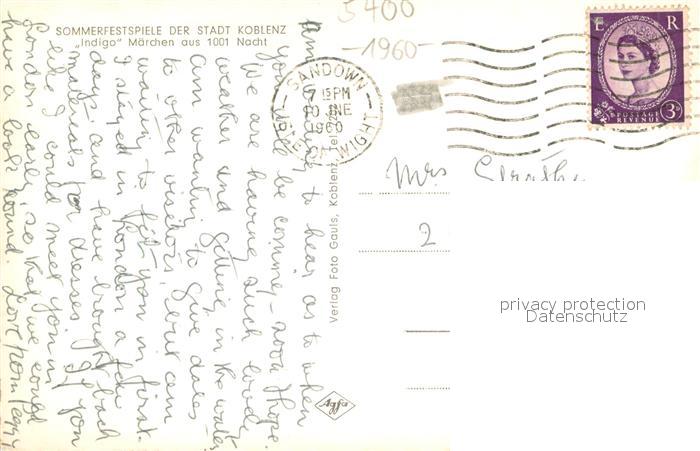 5400
-1960-
SOMMERFESTSPIELE DER STADT KOBLENZ
„Indigo" Märchen aus 1001 Nacht
SANDOWN
7 15 PM
10 JNE
1960
ISLE OF WIGHT
E R
3D
POSTAGE
REVENUE
Mrs
2
privacy protection
Datenschutz
Verlag Foto Gauls, Koblenz, Tel.
Agfa
Am to hear as to when
you will be coming - soon I hope.
We are having such lovely
weather and getting in the water
am wanting to give dates
to other visitors, but am
waiting to fit you in first.
I stayed in London a few
days and have brought back
materials for dresses. If you
like I could meet you in
London early, so that we could
have a look round. Love from Peggy